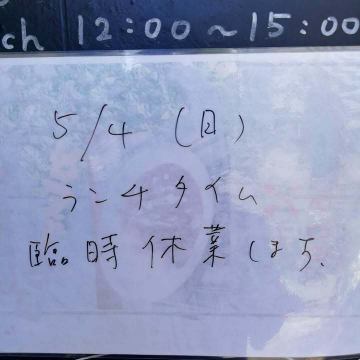 ch 12:00～15:00
5/4 (日)
ランチタイム
臨時休業します、